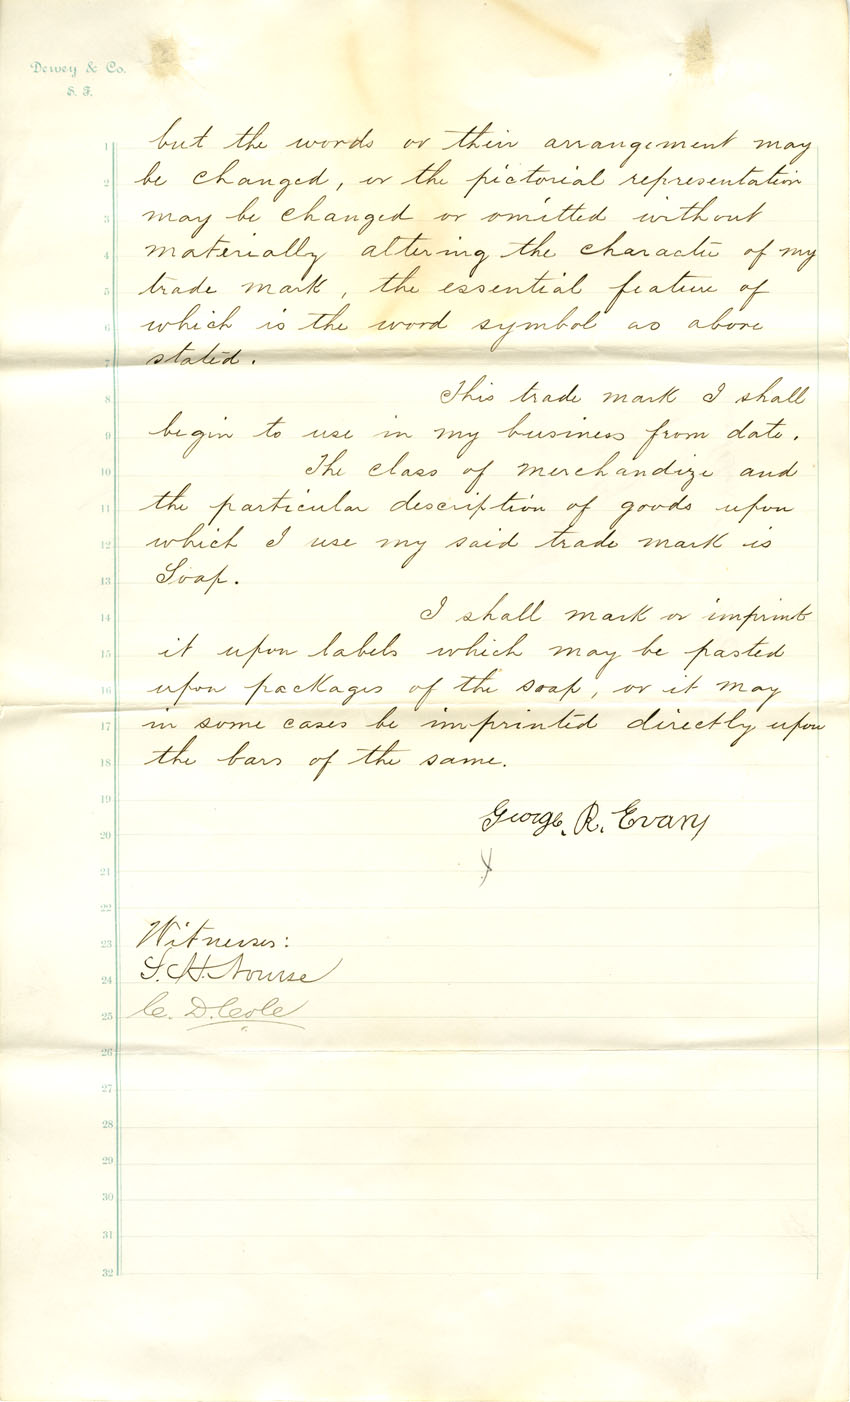 Dewey & Co.
S. F.
1 but the words or their arrangement may
2 be changed, or the pictorial representation
3 may be changed or omitted without
4 materially altering the character of my
5 trade mark, the essential feature of
6 which is the word symbol as above
7 stated.
8 This trade mark I shall
9 begin to use in my business from date.
10 The class of merchandize and
11 the particular description of goods upon
12 which I use my said trade mark is
13 Soap.
14 I shall mark or imprint
15 it upon labels which may be pasted
16 upon packages of the soap, or it may
17 in some cases be imprinted directly upon
18 the bars of the same.
19
George R. Evans
20
21
22
23 Witnesses:
24 S. H. Nourse
25 C. D. Cole
26
27
28
29
30
31
32